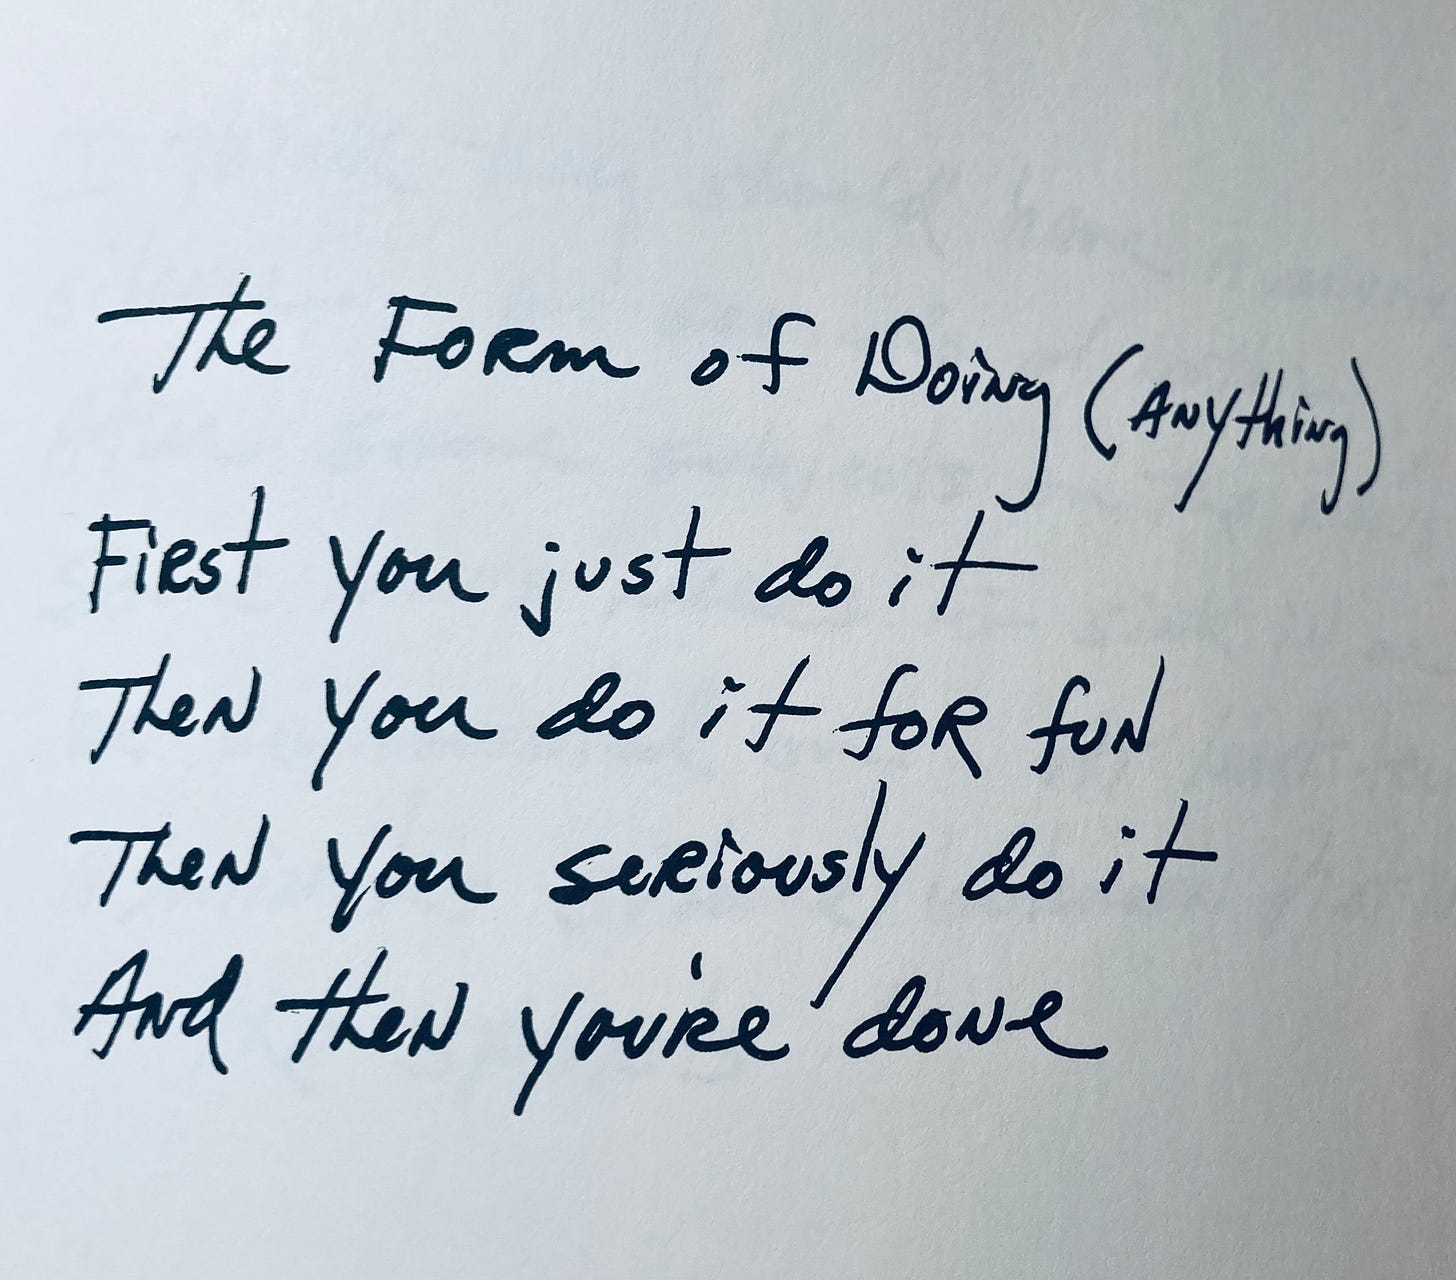 The Form of Doing (Anything)
First you just do it
Then you do it for fun
Then you seriously do it
And then you're done